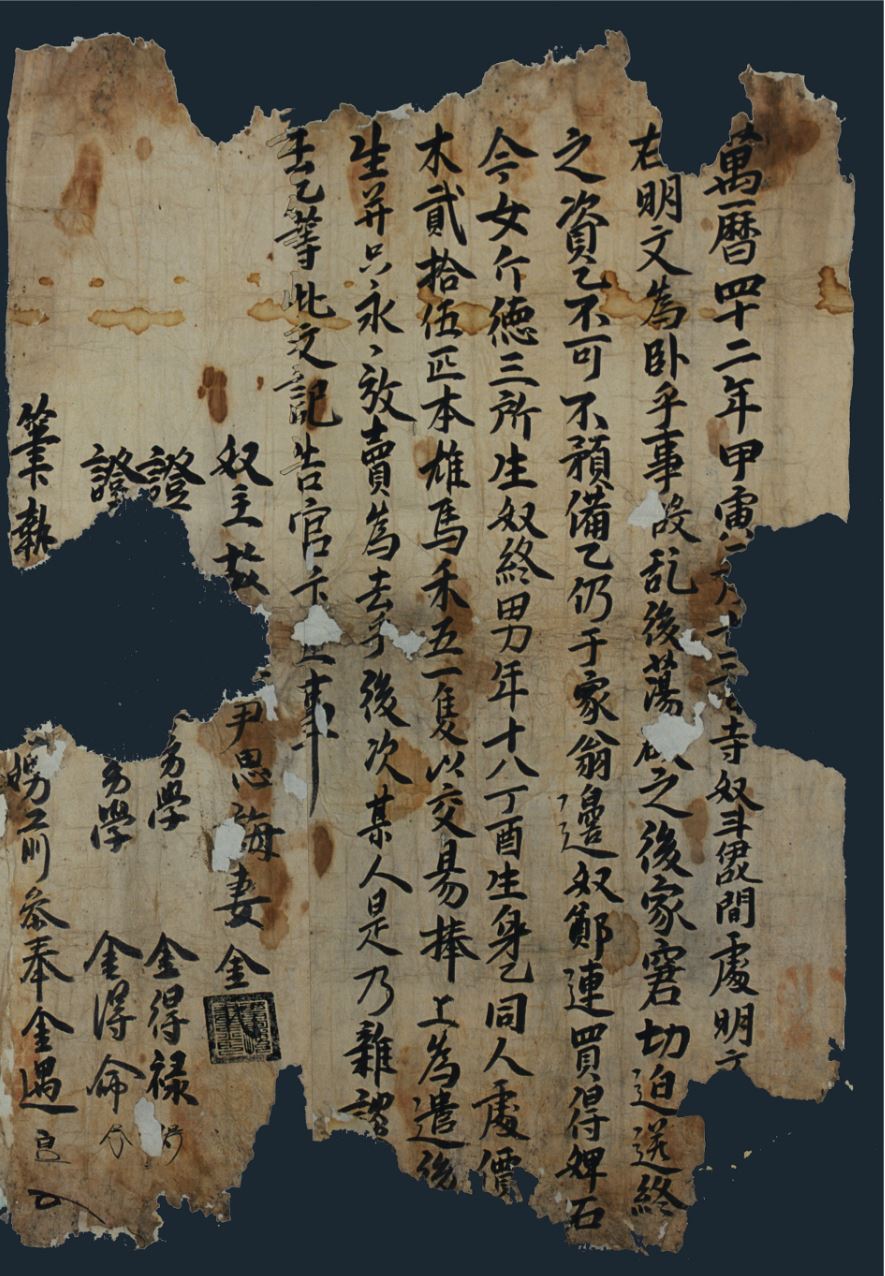 萬曆四十二年甲寅月十三寺奴間處明
右明文為臥乎事段乱後蕩之後家窘切迫送終
之資乙不可不預備乙仍于家翁邊奴鄭連買得婢石
今女介德三所生奴終男年十八丁酉生身乙同人處價
木貳拾伍疋本雄馬禾五一隻以交易捧上為遣後
生并只永〻放賣為去乎後次某人是乃雜談
去乙等此文記告官事
奴主故尹思海妻金
證易學金得祿
證易學金得命
筆執甥前參奉金遇